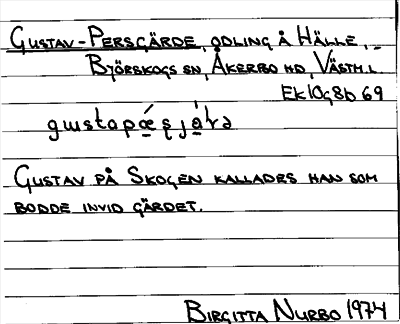 GUSTAV-PERSGÄRDE, ODLING Å HÄLLE,
BJÖRSKOGS SN, ÅKERBO HD, VÄSTM.L.
EK 10g8b 69
GUSTAV PÅ SKOGEN KALLADES HAN SOM
BODDE INVID GÄRDET.
BIRGITTA NURBO 1974